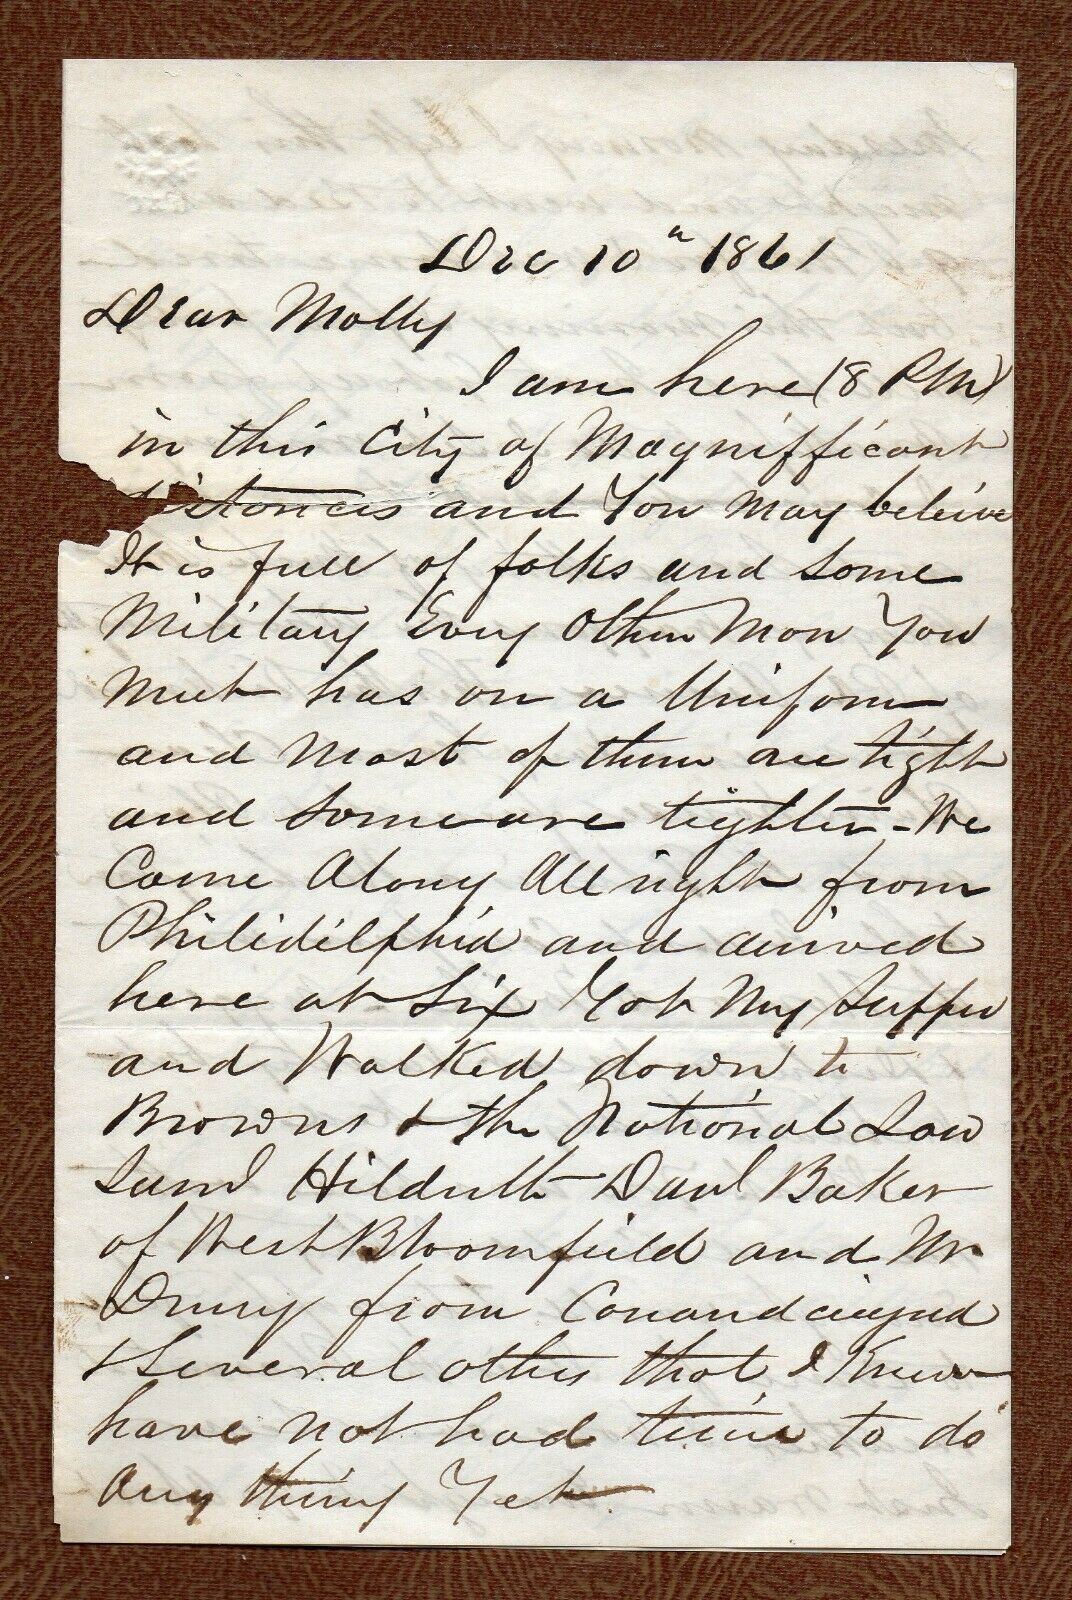 Dec 10th 1861
Dear Molly
I am here (8 PM)
in this City of Magnifficent
distances and You may beleive
It is full of folks and some
Military Every Other Man You
Meet has on a Uniform
and Most of them are tight
and some are tighter - We
Came Along All right from
Philidelphia and arived
here at Six Got My Supper
and Walked down to
Browns & the National Saw
Saml Hildreth Danl Baker
of West Bloomfield and Mr
Drury from Conandaigua
& Several others that I Knew
have not had time to do
any thing Yet